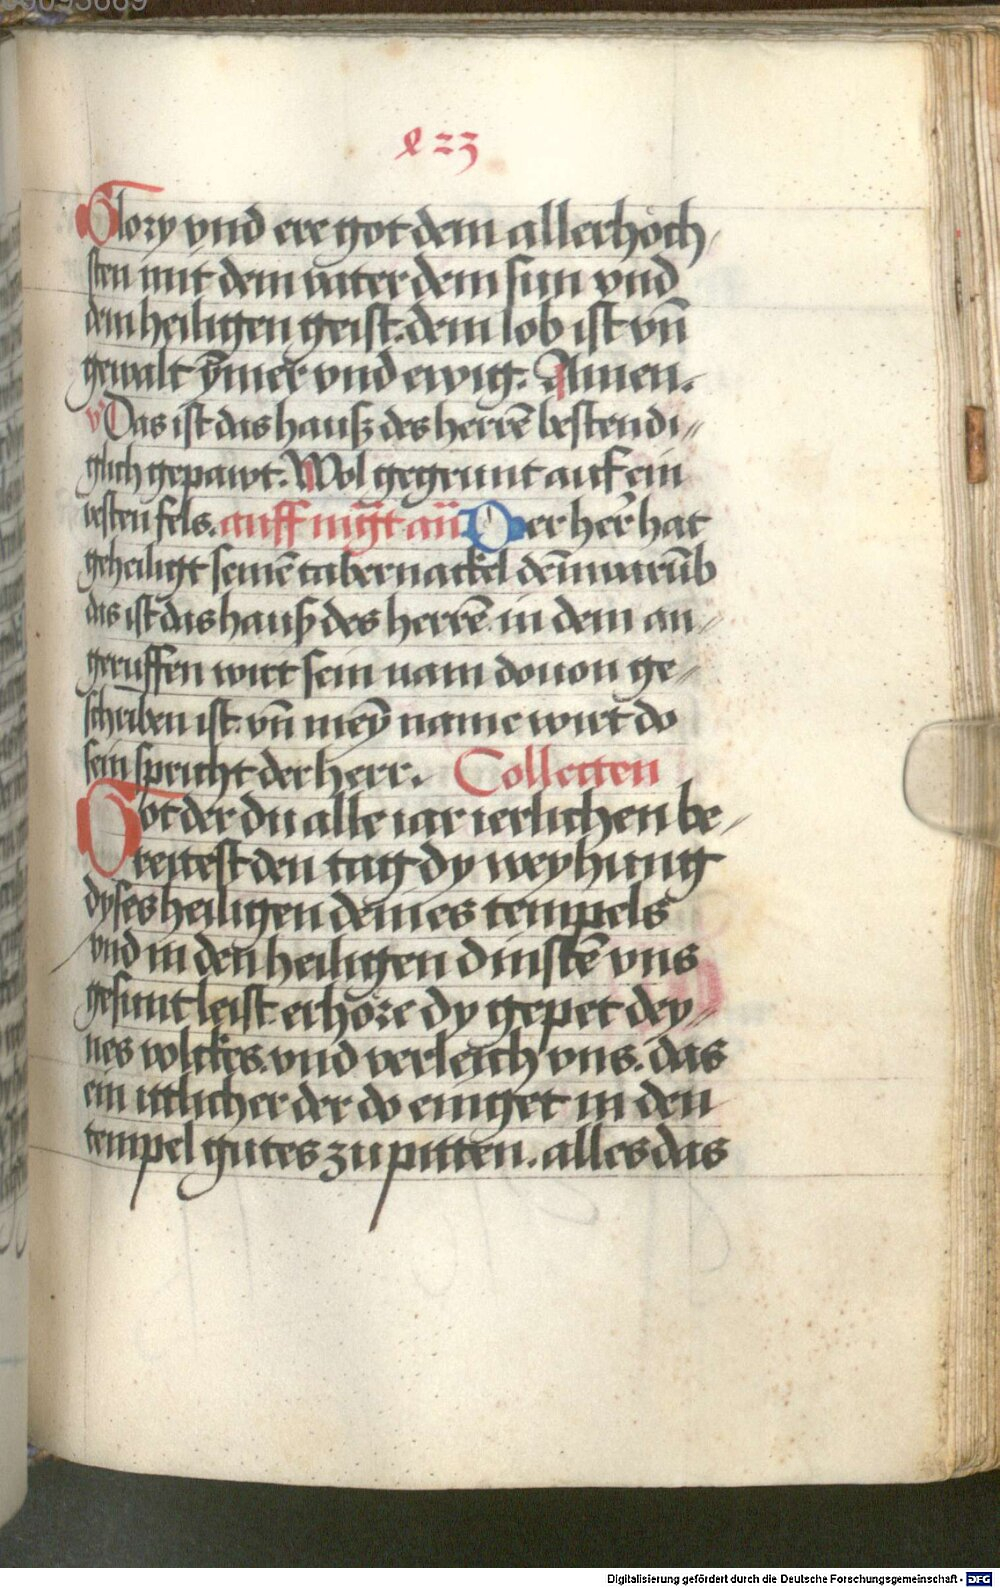 Glory vnd ere got dem allerhöch
sten mit dem vater dem sun vnd
dem heiligen geist. dem lob ist vn̄
gewalt ȳmer vnd ewig. Amen.
v Das ist das hauß des herrē bestendi//
glich gepawt. Wol gegrunt auf ein
vesten fels. auff mgt̄ an̄ Der her̄ hat
geheiligt seinē tabernackel den̄ warūb
das ist das hauß des herrē. in dem an//
geruffen wirt sein nam douon ge//
schriben ist. vn̄ meȳ name wirt do
sein spricht der herr. Collecten
Got der du alle iar ierlichen be//
reitest den tag dy weyhung
dyses heiligen deines tempels
vnd in den heiligen dinstē vns
gesunt leist. erhöre dy gepet dey//
nes volckes. vnd verleich vns. das
ein itlicher der do einget in den
tempel gutes zu pitten. alles das
Digitalisierung gefördert durch die Deutsche Forschungsgemeinschaft - DFG